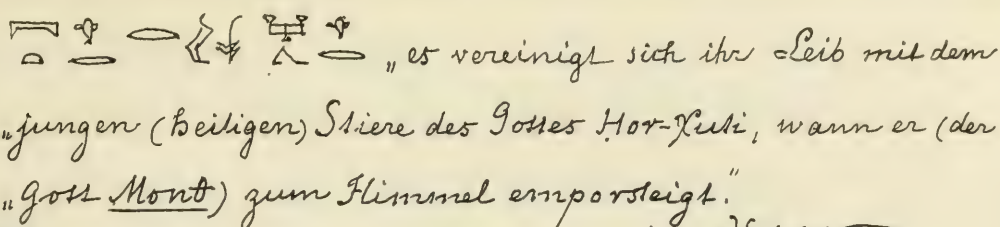 „es vereinigt sich ihr Leib mit dem
„jungen (heiligen) Stiere des Gottes Hor-Xuti, wann er (der
„Gott Mont) zum Himmel emporsteigt."